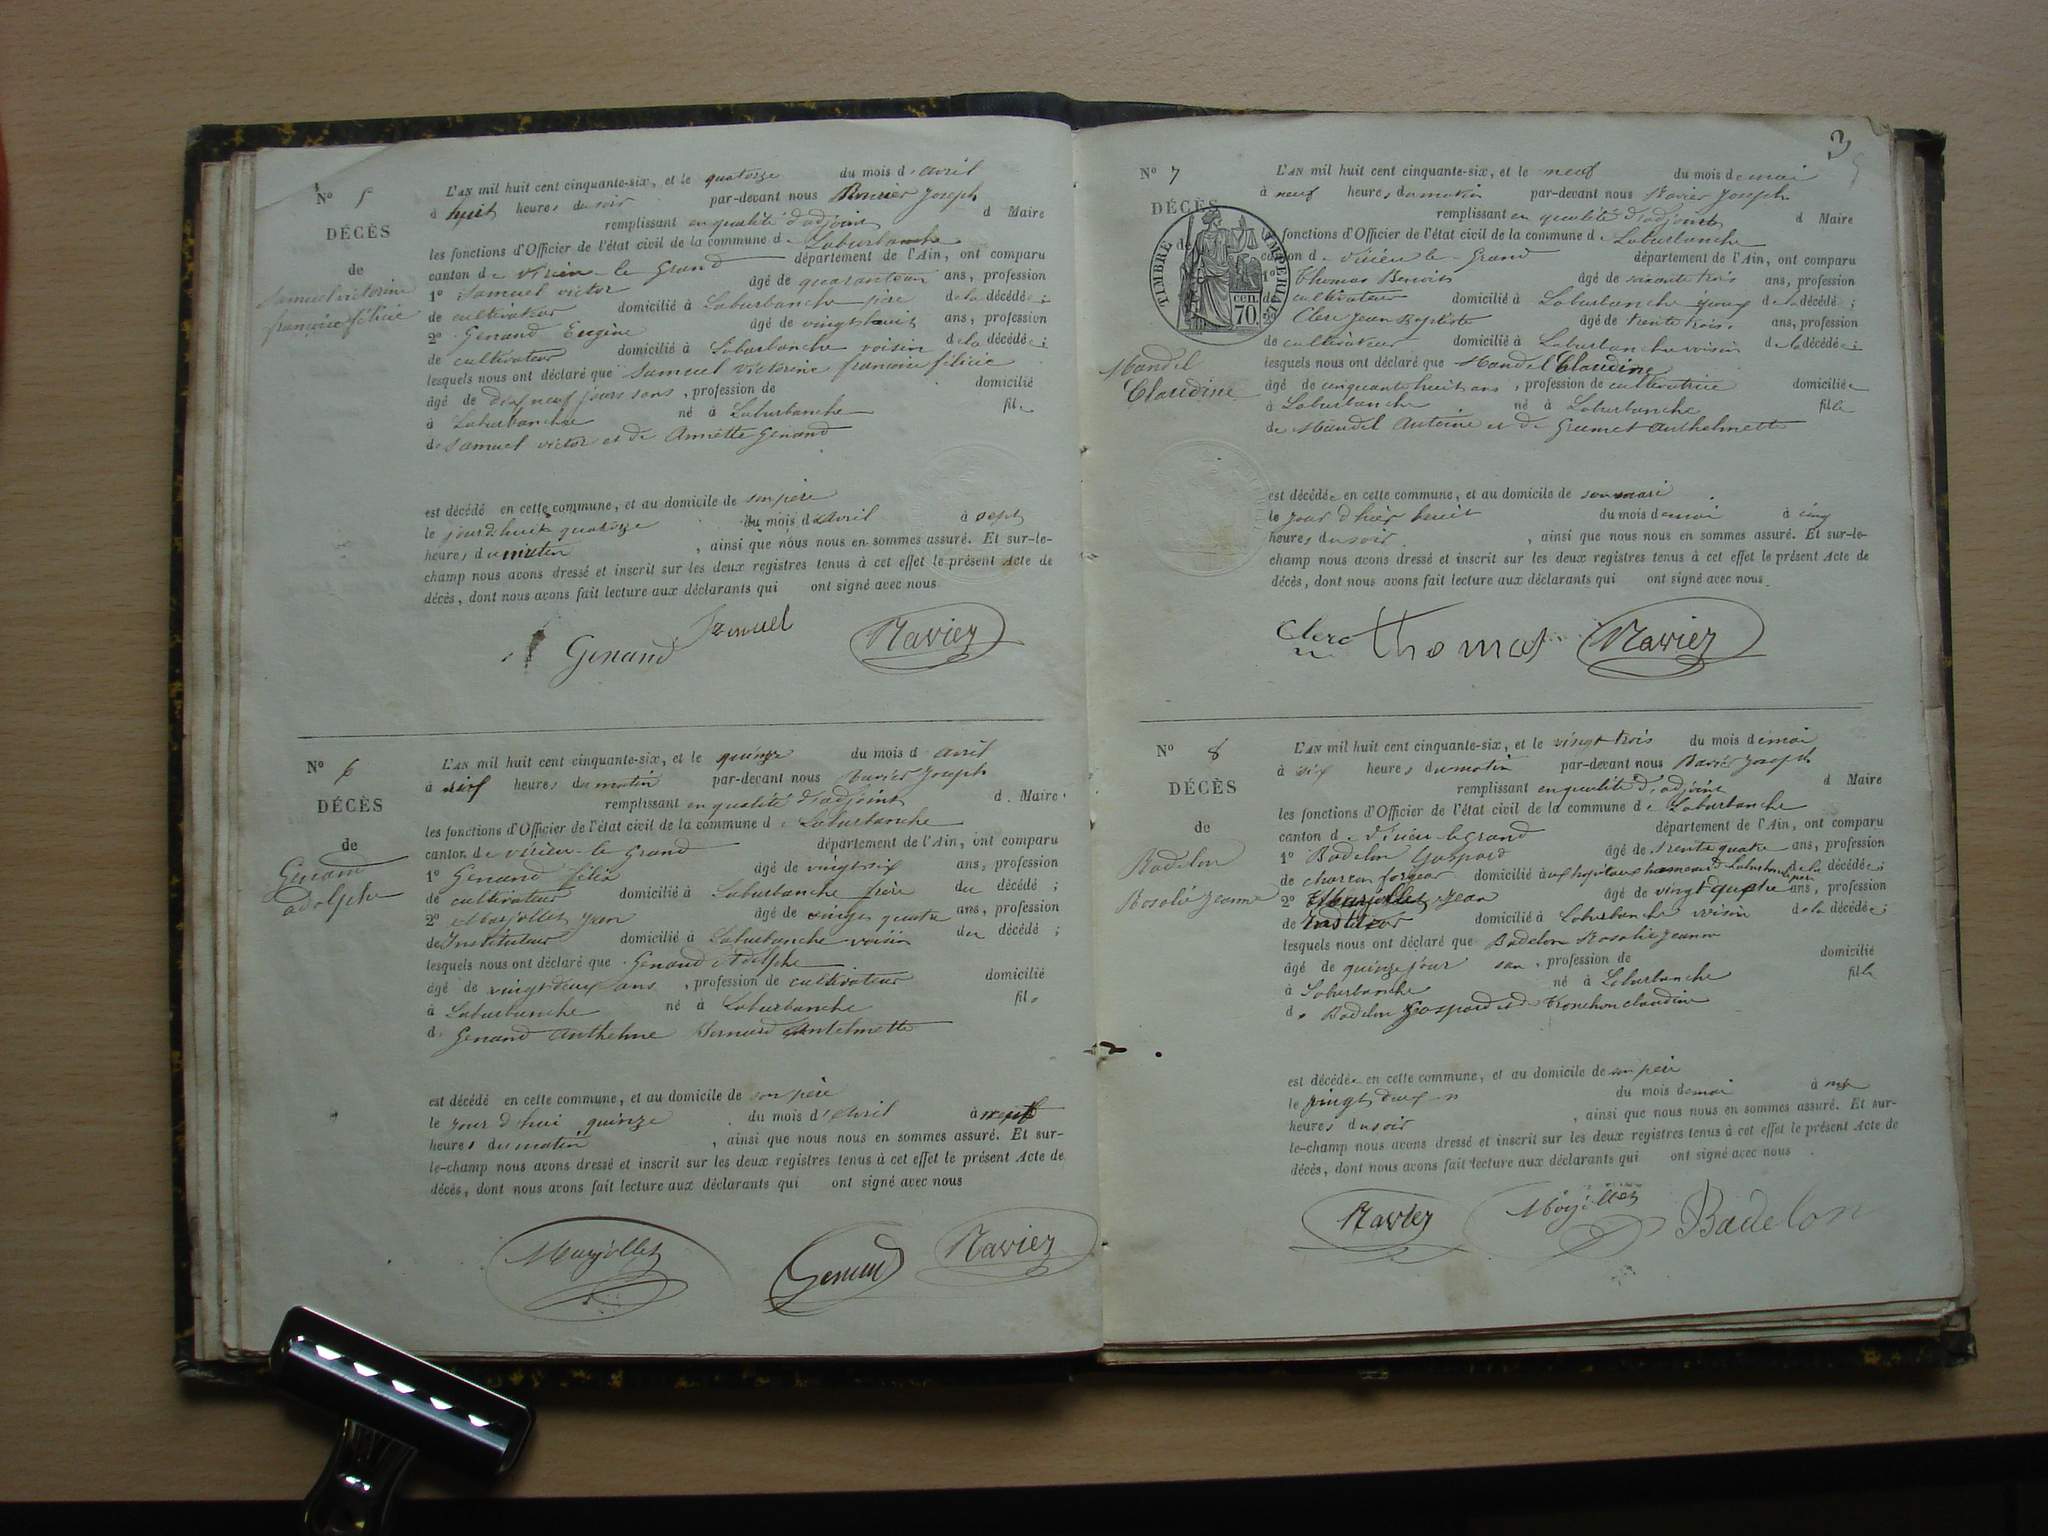 No 5
DÉCÈS
de
Samuel victorine
françoise félicie
L'AN mil huit cent cinquante-six, et le quatorze du mois d'avril
à huit heures du soir par-devant nous Ravier Joseph
remplissant en qualité d'adjoint d Maire
les fonctions d'Officier de l'état civil de la commune de Laburbanche
canton de virieu-le Grand département de l'Ain, ont comparu
1o Samuel victor âgé de ans, profession
de cultivateur domicilié à Laburbanche père de la décédée;
2o Genand Eugène âgé de vingt huit ans, profession
de cultivateur domicilié à Laburbanche voisin de la décédée;
lesquels nous ont déclaré que Samuel victorine françoise félicie
âgé de dix neuf jours sans, profession de domicilié
à Laburbanche né à Laburbanche fille
de Samuel victor et de Annette Genand
est décédé en cette commune, et au domicile de son père
le jourd'huit quatorze du mois d'avril à sept
heures du matin, ainsi que nous nous en sommes assuré. Et sur-le-
champ nous avons dressé et inscrit sur les deux registres tenus à cet effet le présent Acte de
décès, dont nous avons fait lecture aux déclarants qui ont signé avec nous
Genand Samuel Ravier
No 6
DÉCÈS
de
Genand
adolphe
L'AN mil huit cent cinquante-six, et le quinze du mois d avril
à heures du matin par-devant nous Ravier Joseph
remplissant en qualité d'adjoint d Maire
les fonctions d'Officier de l'état civil de la commune de Laburbanche
canton de virieu-le Grand département de l'Ain, ont comparu
1o Genand félix âgé de vingt six ans, profession
de cultivateur domicilié à Laburbanche frère du décédé;
2o Marjollet Jean âgé de vingt quatre ans, profession
de Instituteur domicilié à Laburbanche voisin du décédé;
lesquels nous ont déclaré que Genand Adolphe
âgé de vingt deux ans, profession de cultivateur domicilié
à Laburbanche né à Laburbanche fils
de Genand Anthelme Antelmette
est décédé en cette commune, et au domicile de son père
le jour d'hui quinze du mois d'Avril à
heures du matin, ainsi que nous nous en sommes assuré. Et sur-
le-champ nous avons dressé et inscrit sur les deux registres tenus à cet effet le présent Acte de
décès, dont nous avons fait lecture aux déclarants qui ont signé avec nous
Marjollet Genand Ravier
3
No 7
DÉCÈS
de
TIMBRE IMPERIAL
70 cen.
Mandel
Claudine
L'AN mil huit cent cinquante-six, et le neuf du mois de mai
à neuf heures du matin par-devant nous Ravier Joseph
remplissant en qualité d'adjoint d Maire
les fonctions d'Officier de l'état civil de la commune de Laburbanche
canton de virieu-le-Grand département de l'Ain, ont comparu
1o Thomas Benoit âgé de soixante trois ans, profession
de cultivateur domicilié à Laburbanche époux de la décédé;
Clerc Jean Baptiste âgé de trente trois ans, profession
de cultivateur domicilié à Laburbanche voisin de la décédée;
lesquels nous ont déclaré que Mandel Claudine
âgé de cinquante huit ans, profession de cultivatrice domiciliée
à Laburbanche né à Laburbanche fille
de Mandel Antoine et de Grumet Anthelmette
est décédée en cette commune, et au domicile de son mari
le jour d'hier huit du mois de mai à cinq
heures du soir, ainsi que nous nous en sommes assuré. Et sur-le-
champ nous avons dressé et inscrit sur les deux registres tenus à cet effet le présent Acte de
décès, dont nous avons fait lecture aux déclarants qui ont signé avec nous
Clerc Thomas Ravier
No 8
DÉCÈS
de
Badelon
Rosalie Jeanne
L'AN mil huit cent cinquante-six, et le vingt trois du mois de mai
à dix heures du matin par-devant nous Ravier Joseph
remplissant en qualité d'adjoint d Maire
les fonctions d'Officier de l'état civil de la commune de Laburbanche
canton de virieu-le Grand département de l'Ain, ont comparu
1o Badelon Gaspard âgé de trente quatre ans, profession
de charron forgeur domicilié aux hopitaux hameau de Laburbanche père de la décédée;
2o Marjollet Jean âgé de vingt quatre ans, profession
de Instituteur domicilié à Laburbanche voisin de la décédée;
lesquels nous ont déclaré que Badelon Rosalie Jeanne
âgé de quinze jour san, profession de domicilié
à Laburbanche né à Laburbanche fille
de Badelon Gaspard et de Tronchon claudine
est décédée en cette commune, et au domicile de son père
le vingt deux du mois de mai à
heures du soir, ainsi que nous nous en sommes assuré. Et sur-
le-champ nous avons dressé et inscrit sur les deux registres tenus à cet effet le présent Acte de
décès, dont nous avons fait lecture aux déclarants qui ont signé avec nous
Ravier Marjollet Badelon